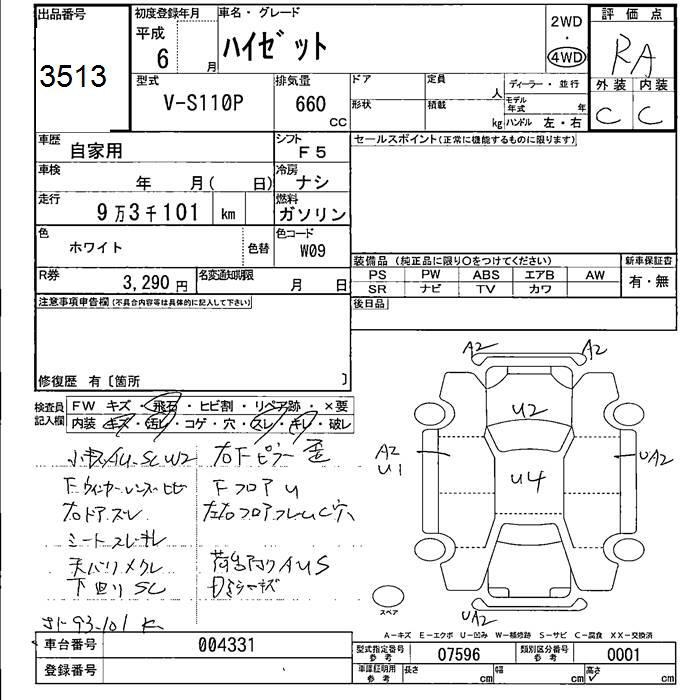 出品番号
3513
初度登録年月
平成
6 月
車名・グレード
ハイゼット
2WD
・
4WD
評価点
RA
外装 内装
C C
型式
V-S110P
排気量
660
CC
ドア
定員
人
形状
積載
kg
ディーラー・並行
モデル年式
年
ハンドル 左・右
車歴
自家用
シフト
F5
車検
年 月( 日)
冷房
ナシ
走行
9万3千101 km
燃料
ガソリン
色
ホワイト
色替
色コード
W09
R券
3,290円
名変通知期限
月 日
セールスポイント(正常に機能するものに限ります)
装備品 (純正品に限り○をつけてください)
新車保証書
PS PW ABS エアB AW
SR ナビ TV カワ
有・無
後日品
注意事項申告欄(不具合内容等は具体的に記入して下さい)
修復歴 有〔箇所 〕
検査員記入欄
FW キズ・飛石・ヒビ割・リペア跡・×要
内装・キズ・汚レ・コゲ・穴・スレ・キレ・破レ
小キズAU・SC W2
右Fピラー歪
Fウィンカーレンズヒビ
FフロアU
右ドアスレ
左右フロアフレームC穴
シートスレキレ
天バリメクレ
荷台アオクAUS
下回りSC
93101K
A2 A2
U2
A2
U1
U4
UA2
UA2
スペア
A-キズ E-エクボ U-凹み W-補修跡 S-サビ C-腐食 XX-交換済
車台番号
004331
登録番号
型式指定番号
参考
07596
類別区分番号
参考
0001
車譚証明用
参考
長さ
cm
幅
cm
高さ
cm